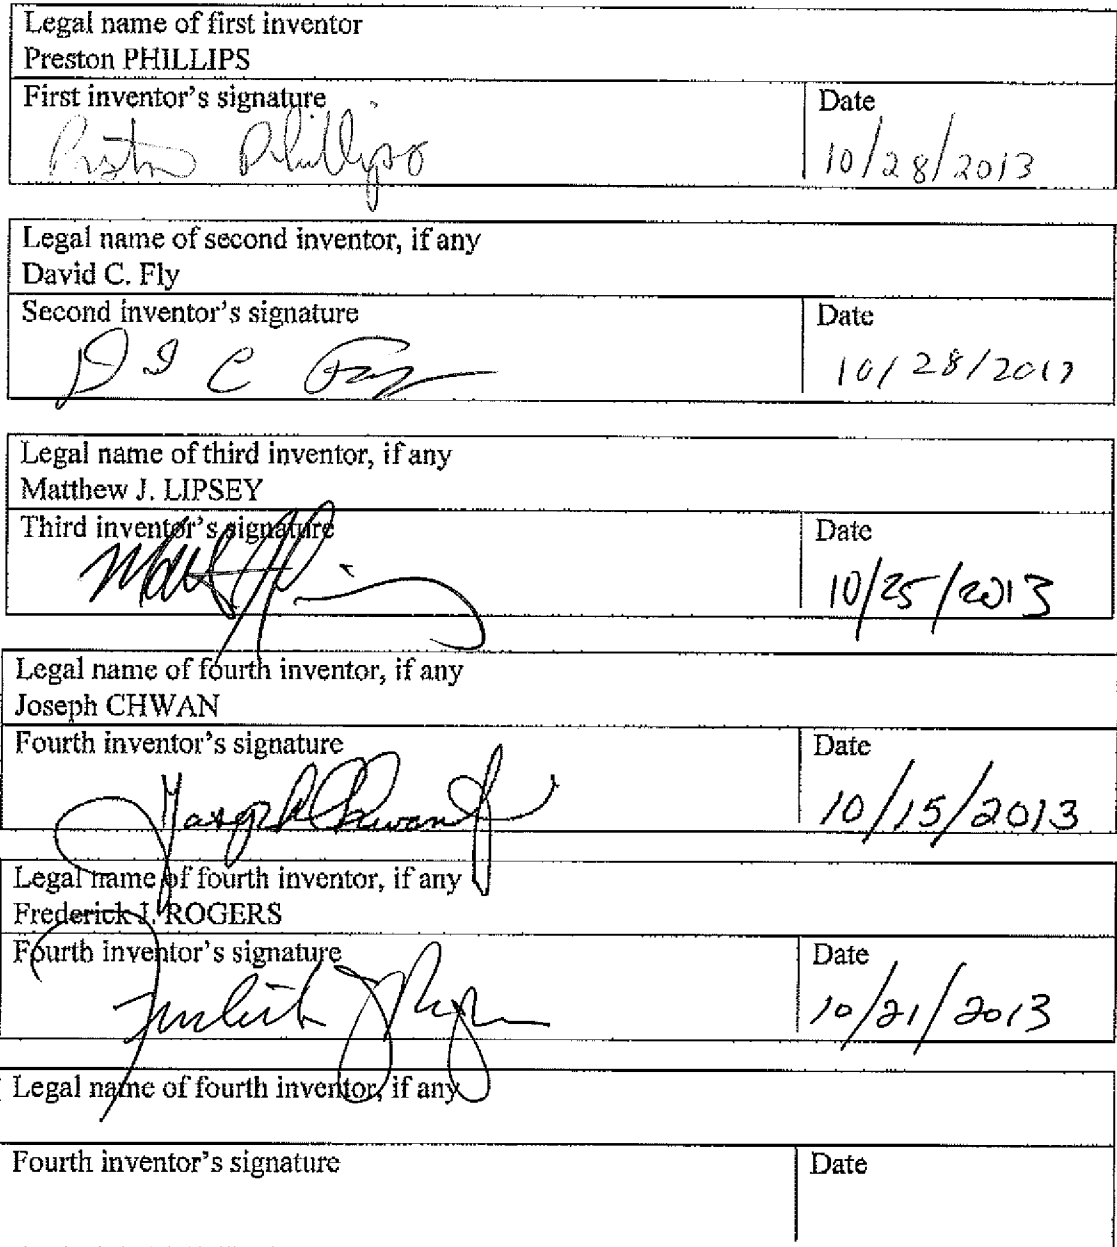 Legal name of first inventor
Preston PHILLIPS
First inventor's signature
Date
Preston Phillips
10/28/2013
Legal name of second inventor, if any
David C. Fly
Second inventor's signature
Date
D C Fly
10/28/2013
Legal name of third inventor, if any
Matthew J. LIPSEY
Third inventor's signature
Date
10/25/2013
Legal name of fourth inventor, if any
Joseph CHWAN
Fourth inventor's signature
Date
Joseph Chwan
10/15/2013
Legal name of fourth inventor, if any
Frederick J. ROGERS
Fourth inventor's signature
Date
Frederick J Rogers
10/21/2013
Legal name of fourth inventor, if any
Fourth inventor's signature
Date